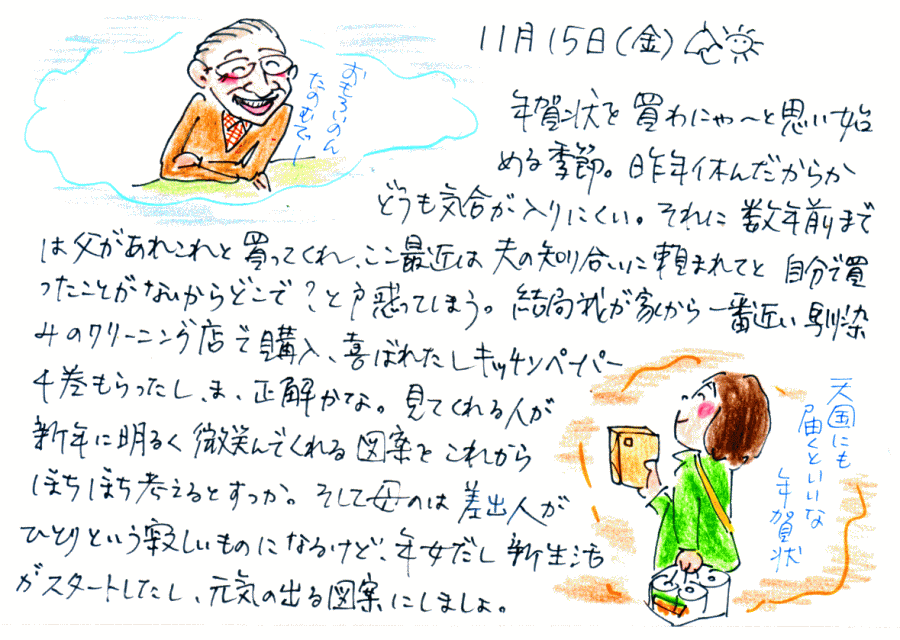 11月15日(金)
おもろいのん
たのむでー
年賀状を買わにゃ〜と思い始
める季節。昨年休んだからか
どうも気合が入りにくい。それに数年前まで
は父があれこれと買ってくれ、ここ最近は夫の知り合いに頼まれてと自分で買
ったことがないからどこで?と戸惑ってしまう。結局我が家から一番近い馴染
みのクリーニング店で購入、喜ばれたしキッチンペーパー
4巻もらったし、ま、正解かな。見てくれる人が
新年に明るく微笑んでくれる図案をこれから
ぼちぼち考えるとすっか。そして母のは差出人が
ひとりという寂しいものになるけど、年女だし新生活
がスタートしたし、元気の出る図案にしましょ。
天国にも
届くといいな
年賀状